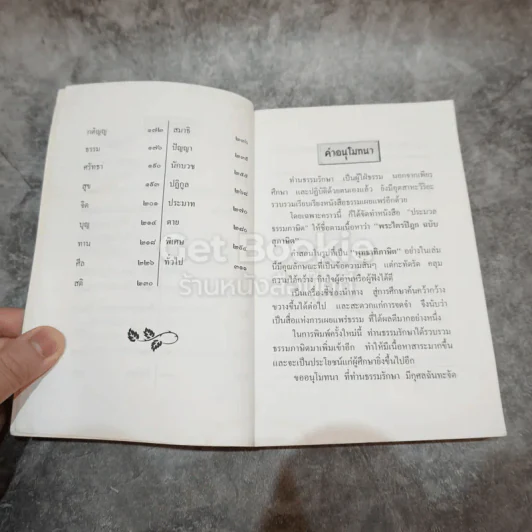 กตัญญู ๑๗๒ สมาธิ
ธรรม ๑๗๖ ปัญญา
ศรัทธา ๑๘๐ นักบวช
สุข ๑๙๓ ปฏิกูล
จิต ๒๐๑ ประมาท
บุญ ๒๑๔ ตาย
ทาน ๒๑๘ พิเศษ
ศีล ๒๒๖ ทั่วไป ๓๑๑
สติ ๒๓๐
คำอนุโมทนา
ท่านธรรมรักษา เป็นผู้ใฝ่ธรรม นอกจากเพียร
ศึกษา และปฏิบัติด้วยตนเองแล้ว ยังมีอุตสาหะวิริยะ
รวบรวมเรียบเรียงหนังสือธรรมเผยแพร่อีกด้วย
โดยเฉพาะคราวนี้ ก็ได้จัดทำหนังสือ "ประมวล
ธรรมภาษิต" ให้ชื่อตามเนื้อหาว่า "พระไตรปิฎก ฉบับ
สุภาษิต"
คำสอนในรูปที่เป็น "พุทธภาษิต" อย่างในเล่ม
นี้มีคุณลักษณะที่เป็นข้อความสั้นๆ แต่กะทัดรัด หลุม
ความได้กว้าง จับใจผู้อ่านหรือผู้ฟังได้ดี
สู่การศึกษาค้นคว้ากว้าง
ขวางขึ้นได้ต่อไป และสะดวกแก่การจดจำ จึงนับว่า
เป็นสื่อแห่งการเผยแพร่ธรรม ที่ได้ผลดีมากอย่างหนึ่ง
ในการพิมพ์ครั้งใหม่นี้ ท่านธรรมรักษาได้รวบรวม
ธรรมภาษิตมาเพิ่มเข้าอีก ทำให้มีเนื้อหาสาระมากขึ้น
และจะเป็นประโยชน์แก่ผู้ศึกษายิ่งขึ้นไปอีก
ขออนุโมทนา ที่ท่านธรรมรักษา มีกุศลฉันทะจัด
Get Bookie
ร้านหนังสือ